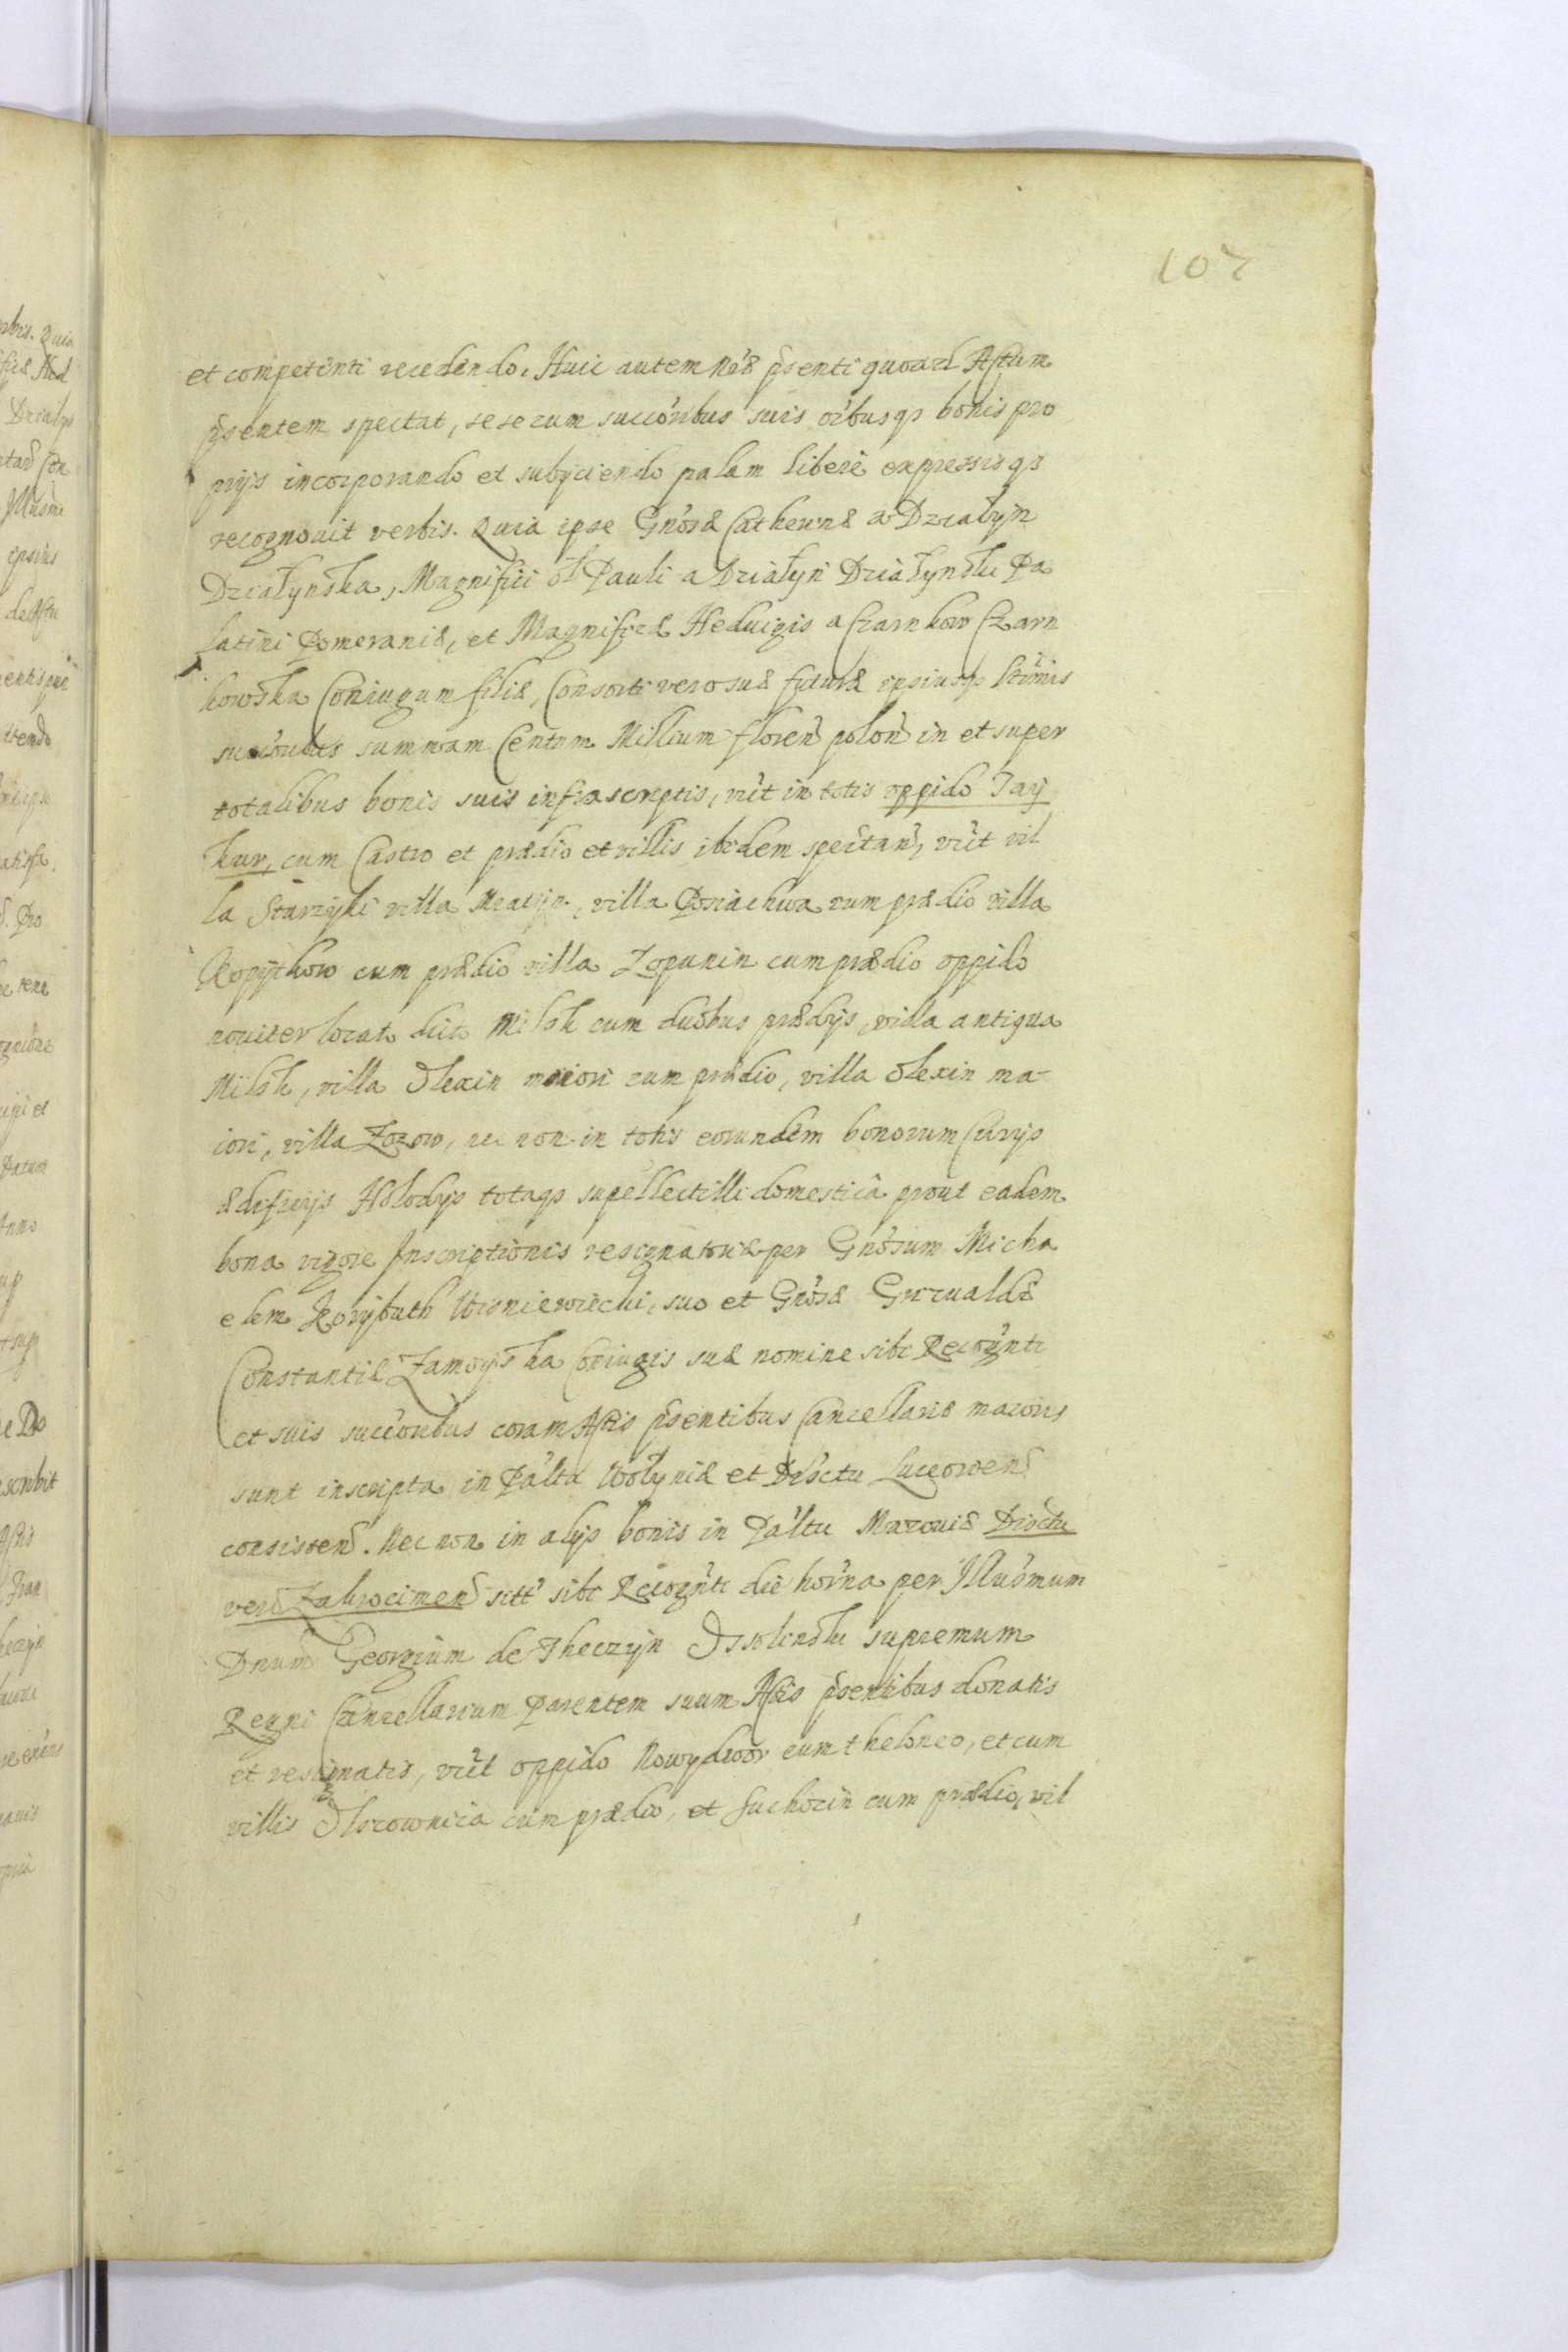 107
et competenti recedendo. Huic autem Nræ pñsenti quoad Actum
pñsentem spectat, sese cum succoribus suis oibusqs bonis pro
prijs incorporando et subyciendo palam libere expressisqs
recognovit verbis. Quia ipse Gnosæ Catherinæ a Dzialyn
Dzialynska, Magnifici ol Pauli a Dzialyn Dzialynski Pa
latini Pomeraniæ, et Magnificæ Heduigis a Czarnkow Czarn
kowska Coniugum filiæ, Consorti vero suæ futuræ ipsiusqs ltimis
succoribus summam Centum Millium floren polon in et super
totalibus bonis suis infrascriptis, vut in totis oppido Jay
kur, cum Castro et prædio et villis ibidem spectan, vut vil
la Starzyki villa Mratyn, villa Posiachwa cum prædio villa
Kopytkow cum prædio villa Zopunin cum prædio oppido
noviter locato dicto Milsk cum duobus prædijs, villa antiqua
Milsk, villa Olexin miori cum prædio, villa Olexin ma-
iori, villa Zozow, nec non in totis eorundem bonorum Curijs
ædificijs Holodijs totaqs supellectilli domestica prout eadem
bona vigore Inscriptionis resignatoriæ per Gnosum Micha
elem Korybuth Wisniewiecki, suo et Gnosæ Grizualdæ
Constantiæ Zamoyska Coniugis suæ nomine sibi Recognti
et suis succoribus coram Actis pñsentibus Cancellariæ maioris
sunt inscripta in Palta Wolyniæ et Disctu Luceorien
consisten. Nec non in alijs bonis in Paltu Mazoviæ Disctu
vero Zakrocimen sitt sibi Recognti die horna per Illusmum
Dnum Georgium de Theczyn Ossolinski supremum
Regni Cancellarium Parentem suum Actis pñsentibus donatis
et resignatis, vut oppido Nowydwor cum theloneo, et cum
villis Okrownica cum prædio, et Suchocin cum prædio, vil